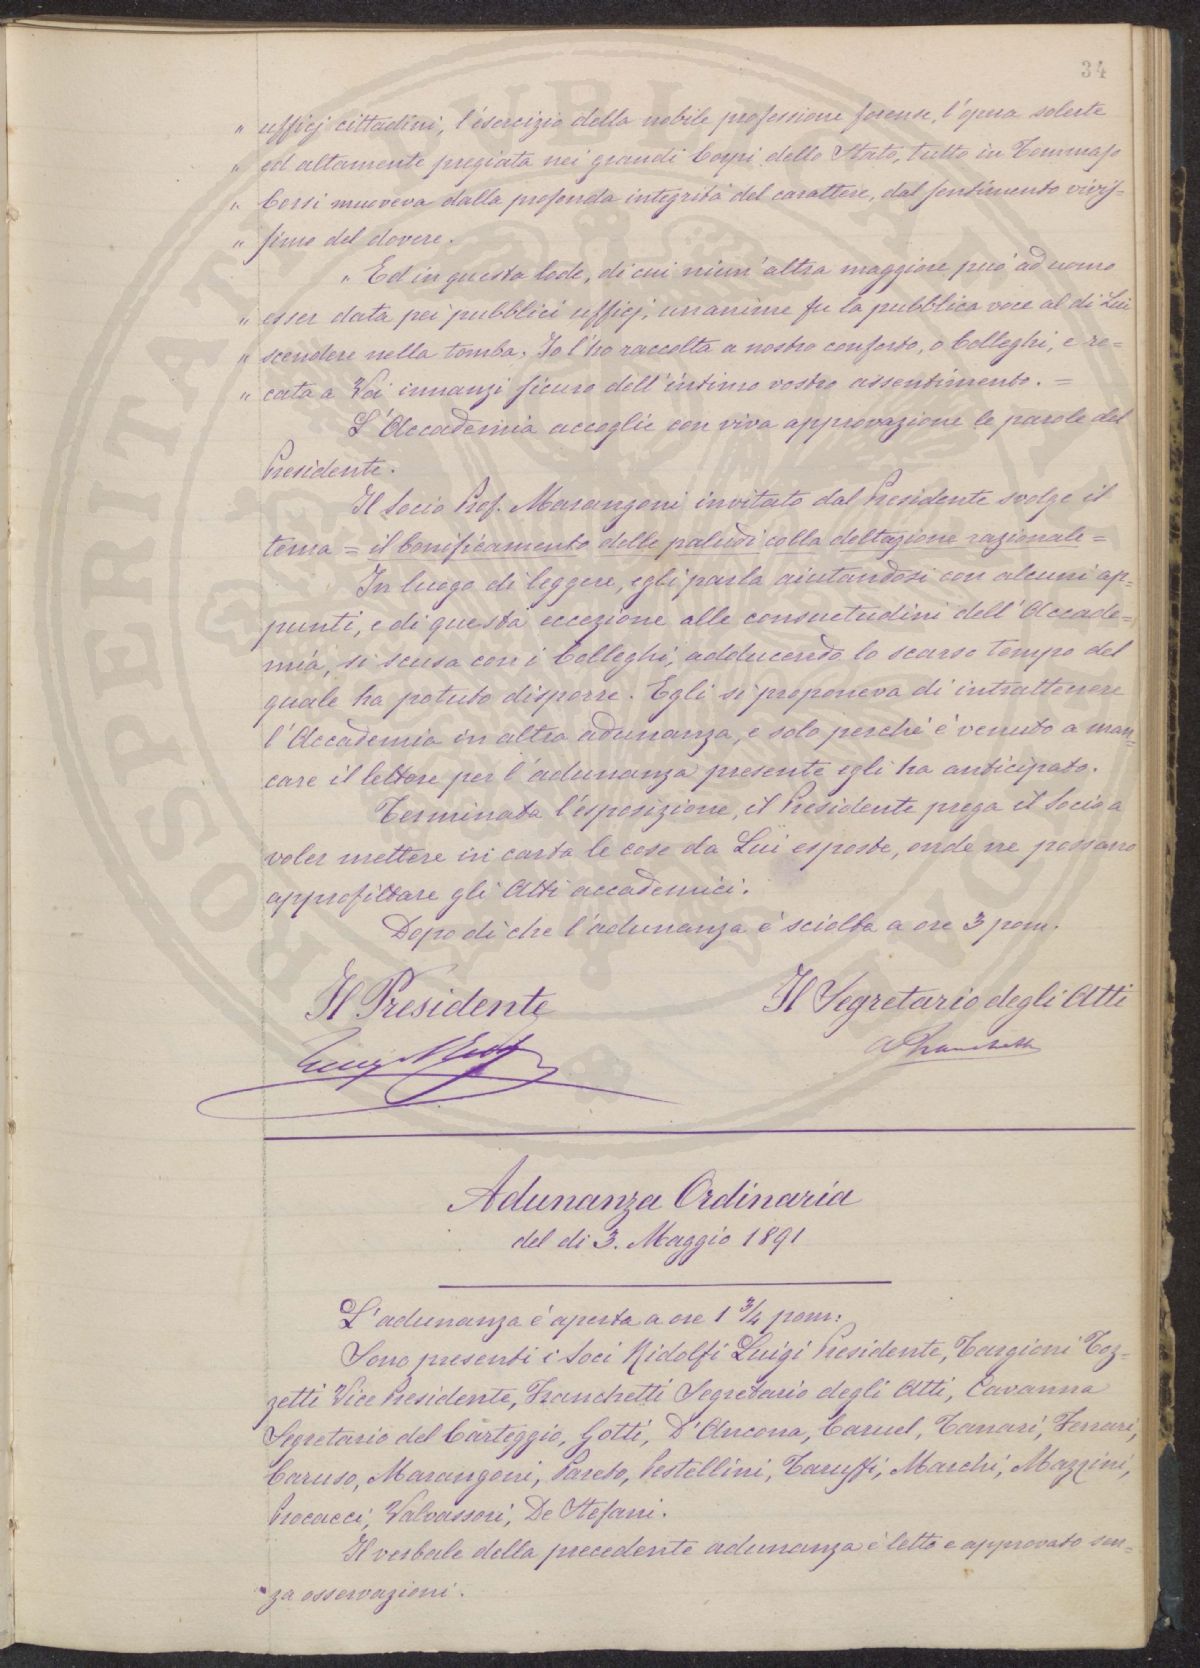 34
" ufficj cittadini, l'esercizio della nobile professione forense, l'opera solerte
" ed altamente pregiata nei grandi Corpi dello Stato, tutto in Tommaso
" Corsi muoveva dalla profonda integrità del carattere, dal sentimento vivis-
" simo del dovere.
" Ed in questa lode, di cui niun'altra maggiore può ad uomo
" esser data pei pubblici ufficj, unanime fu la pubblica voce al di Lui
" scendere nella tomba. Io l'ho raccolta a nostro conforto, o Colleghi, e re=
" cata a Voi innanzi sicuro dell'intimo vostro assentimento. =
L'Accademia accoglie con viva approvazione le parole del
Presidente.
Il Socio Prof. Marangoni invitato dal Presidente svolge il
tema = il bonificamento delle paludi colla deltazione razionale =
In luogo di leggere, egli parla aiutandosi con alcuni ap=
punti, e di questa eccezione alle consuetudini dell'Accade=
mia, si scusa con i Colleghi, adducendo lo scarso tempo del
quale ha potuto disporre. Egli si proponeva di intrattenere
l'Accademia in altra adunanza, e solo perché è venuto a man=
care il lettore per l'adunanza presente egli ha anticipato.
Terminata l'esposizione, il Presidente prega il Socio a
voler mettere in carta le cose da Lui esposte, onde ne possano
approfittare gli Atti accademici.
Dopo di che l'adunanza è sciolta a ore 3 pom.
Il Presidente Il Segretario degli Atti
Luigi Ridolfi A Franchetti
Adunanza Ordinaria
del dì 3. Maggio 1891
L'adunanza è aperta a ore 1 3/4 pom:
Sono presenti i Soci Ridolfi Luigi Presidente, Targioni Toz-
zetti Vice Presidente, Franchetti Segretario degli Atti, Cavanna
Segretario del Carteggio, Gotti, D'Ancona, Caruel, Tanari, Ferrari,
Caruso, Marangoni, Pareto, Pestellini, Taruffi, Marchi, Mazzini,
Procacci, Valvassori, De Stefani.
Il verbale della precedente adunanza è letto e approvato sen=
za osservazioni.
PROSPERITATI